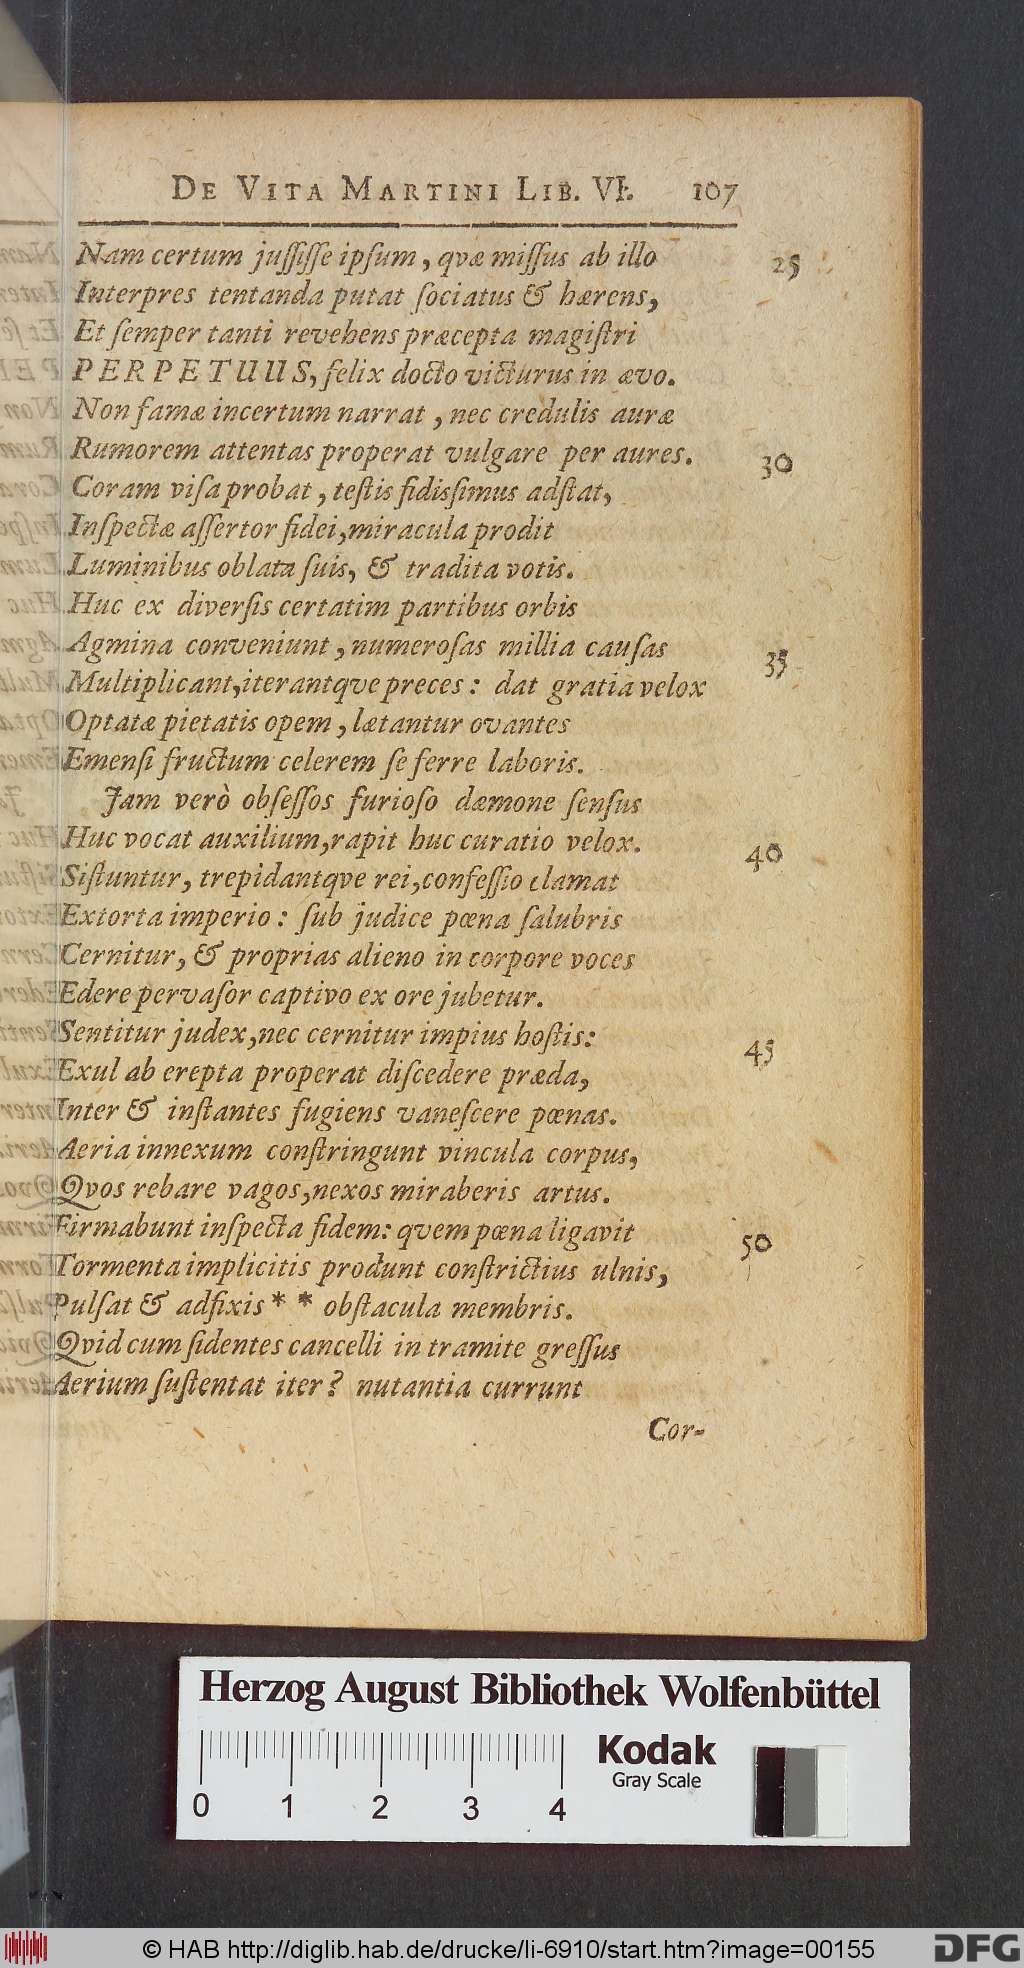 DE VITA MARTINI LIB. VI. 107
Nam certum juſſiſſe ipſum, qvæ miſſus ab illo 25
Interpres tentanda putat ſociatus & hærens,
Et ſemper tanti revehens præcepta magiſtri
PERPETUUS, felix docto victurus in ævo.
Non famæ incertum narrat, nec credulis auræ
Rumorem attentas properat vulgare per aures. 30
Coram viſa probat, teſtis fidisſimus adſtat,
Inſpectæ aſſertor fidei, miracula prodit
Luminibus oblata ſuis, & tradita votis.
Huc ex diverſis certatim partibus orbis
Agmina conveniunt, numeroſas millia cauſas 35
Multiplicant, iterantqve preces: dat gratia velox
Optatæ pietatis opem, lætantur ovantes
Emenſi fructum celerem ſe ferre laboris.
Jam verò obſeſſos furioſo dæmone ſenſus
Huc vocat auxilium, rapit huc curatio velox. 40
Siſtuntur, trepidantqve rei, confeſſio clamat
Extorta imperio: ſub judice pœna ſalubris
Cernitur, & proprias alieno in corpore voces
Edere pervaſor captivo ex ore jubetur.
Sentitur judex, nec cernitur impius hoſtis: 45
Exul ab erepta properat diſcedere præda,
Inter & inſtantes fugiens vaneſcere pœnas.
Aeria innexum conſtringunt vincula corpus,
Qvos rebare vagos, nexos miraberis artus.
Firmabunt inſpecta fidem: qvem pœna ligavit 50
Tormenta implicitis produnt conſtrictius ulnis,
Pulſat & adfixis * * obſtacula membris.
Qvid cum ſidentes cancelli in tramite greſſus
Aerium ſuſtentat iter? nutantia currunt
Cor-
Herzog August Bibliothek Wolfenbüttel
Kodak
Gray Scale
0 1 2 3 4
© HAB http://diglib.hab.de/drucke/li-6910/start.htm?image=00155
DFG